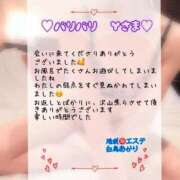 ♡バリバリ Yさま♡
会いに来てくださりありがとう
ございました😊
お風呂でたくさんお遊びしてしまいました
ね
わたしの弱点をすぐ見ぬかれてしまいまし
た🥺
お返しとばかりに、沢山焦らさせて頂き
ありがとうございます
楽しい時間でした
池袋㊙エステ
白鳥あかり